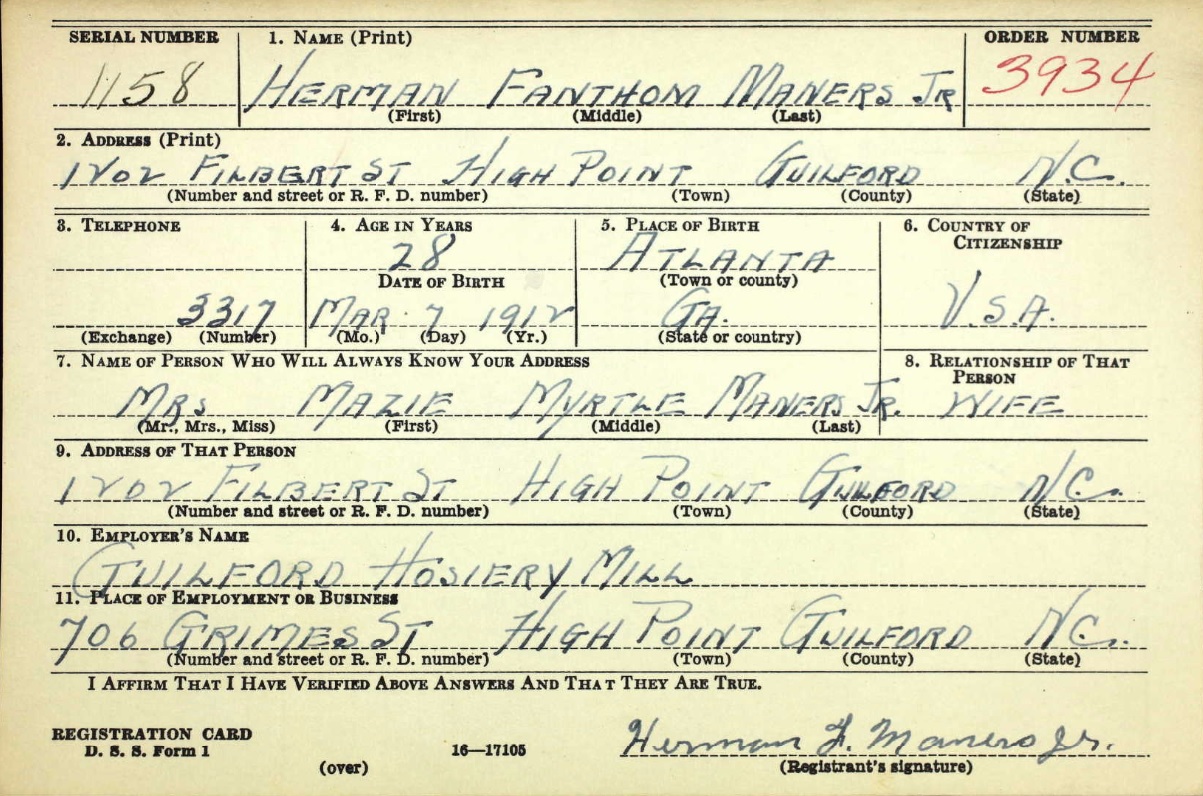 SERIAL NUMBER 1. NAME (Print) ORDER NUMBER
1158 HERMAN FANTHOM MANERS JR 3934
(First) (Middle) (Last)
2. ADDRESS (Print)
1202 FILBERT ST HIGH POINT GUILFORD N.C.
(Number and street or R. F. D. number) (Town) (County) (State)
3. TELEPHONE 4. AGE IN YEARS 5. PLACE OF BIRTH 6. COUNTRY OF CITIZENSHIP
28 ATLANTA
DATE OF BIRTH (Town or county)
3317 MAR 7 1912 GA. U.S.A.
(Exchange) (Number) (Mo.) (Day) (Yr.) (State or country)
7. NAME OF PERSON WHO WILL ALWAYS KNOW YOUR ADDRESS 8. RELATIONSHIP OF THAT PERSON
MRS MAZIE MYRTLE MANERS JR. WIFE
(Mr., Mrs., Miss) (First) (Middle) (Last)
9. ADDRESS OF THAT PERSON
1202 FILBERT ST HIGH POINT GUILFORD N.C.
(Number and street or R. F. D. number) (Town) (County) (State)
10. EMPLOYER'S NAME
GUILFORD HOSIERY MILL
11. PLACE OF EMPLOYMENT OR BUSINESS
706 GRIMES ST HIGH POINT GUILFORD N.C.
(Number and street or R. F. D. number) (Town) (County) (State)
I AFFIRM THAT I HAVE VERIFIED ABOVE ANSWERS AND THAT THEY ARE TRUE.
REGISTRATION CARD
D. S. S. Form 1 16—17105 Herman F. Maners Jr.
(over) (Registrant's signature)